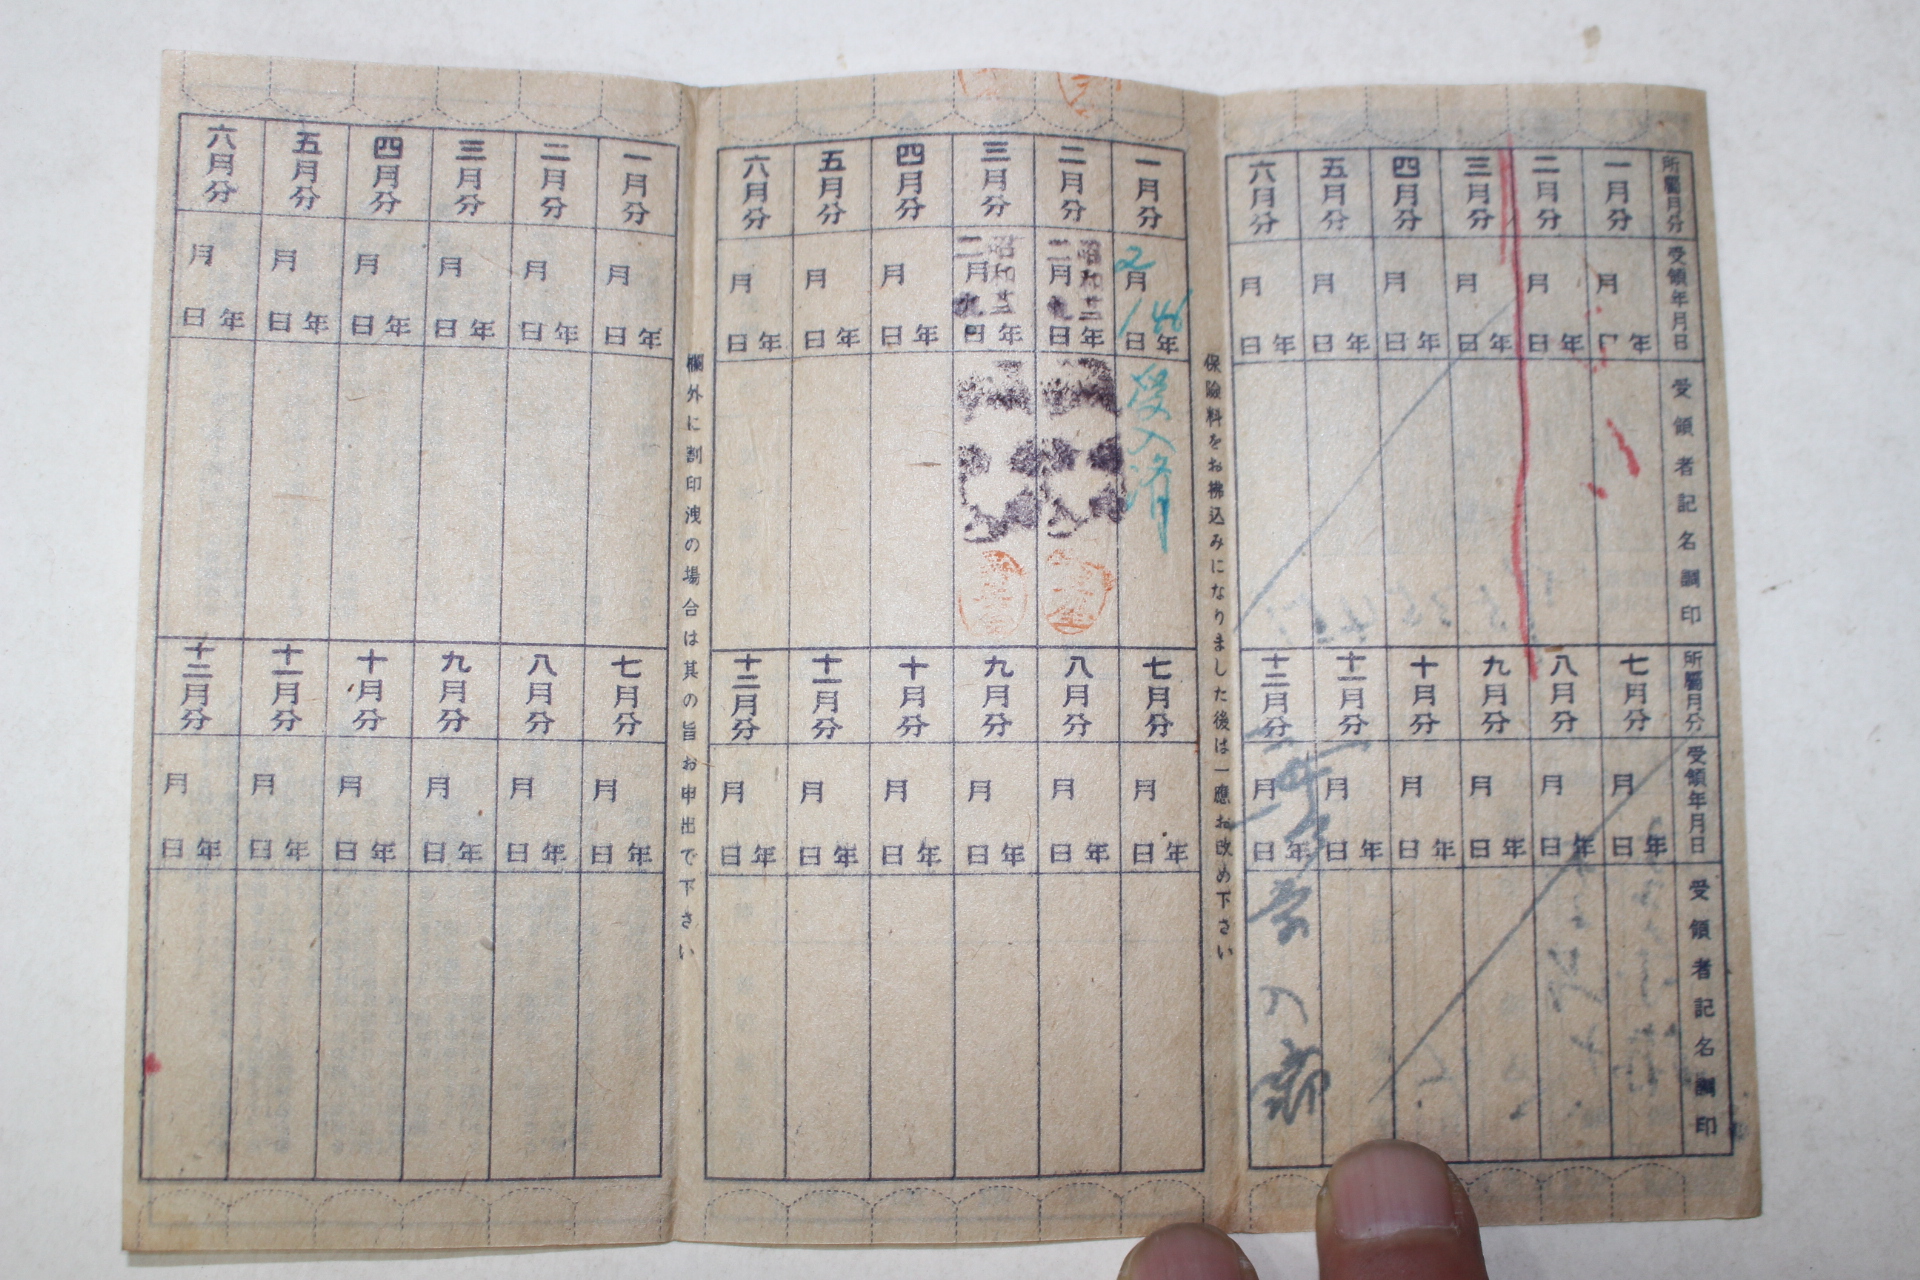 所屬月分 一月分 二月分 三月分 四月分 五月分 六月分
受領年月日 年月日 年月日 年月日 年月日 年月日 年月日
受領者記名調印
所屬月分 七月分 八月分 九月分 十月分 十一月分 十二月分
受領年月日 年月日 年月日 年月日 年月日 年月日 年月日
受領者記名調印
保險料をお拂込みになりました後は一應お改め下さい
一月分 二月分 三月分 四月分 五月分 六月分
46年2月1日 昭和 年二月九日 昭和 年二月九日 年月日 年月日 年月日
受入済
七月分 八月分 九月分 十月分 十一月分 十二月分
年月日 年月日 年月日 年月日 年月日 年月日
欄外に割印洩の場合は其の旨お申出で下さい
一月分 二月分 三月分 四月分 五月分 六月分
年月日 年月日 年月日 年月日 年月日 年月日
七月分 八月分 九月分 十月分 十一月分 十二月分
年月日 年月日 年月日 年月日 年月日 年月日